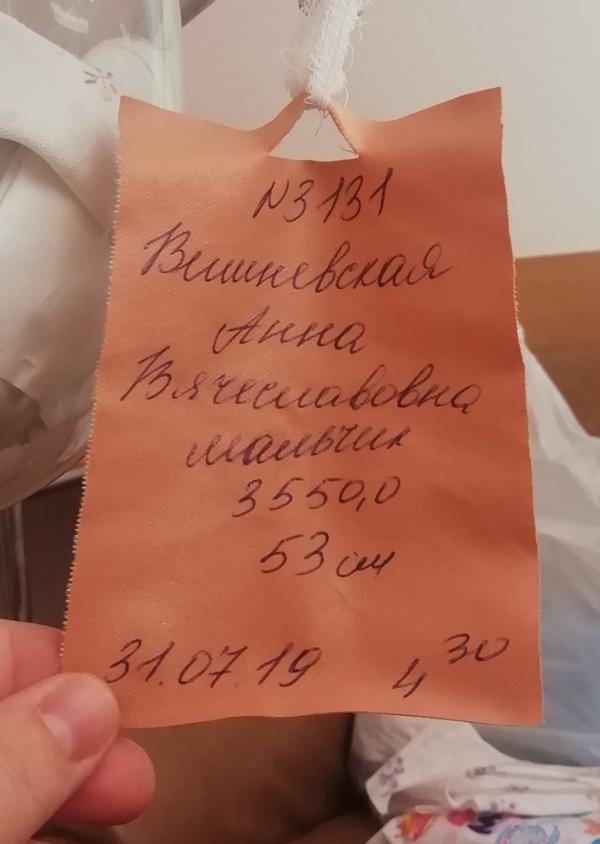 N3131
Вишневская
Анна
Вячеславовна
мальчик
3550,0
53 см
31.07.19 4 30